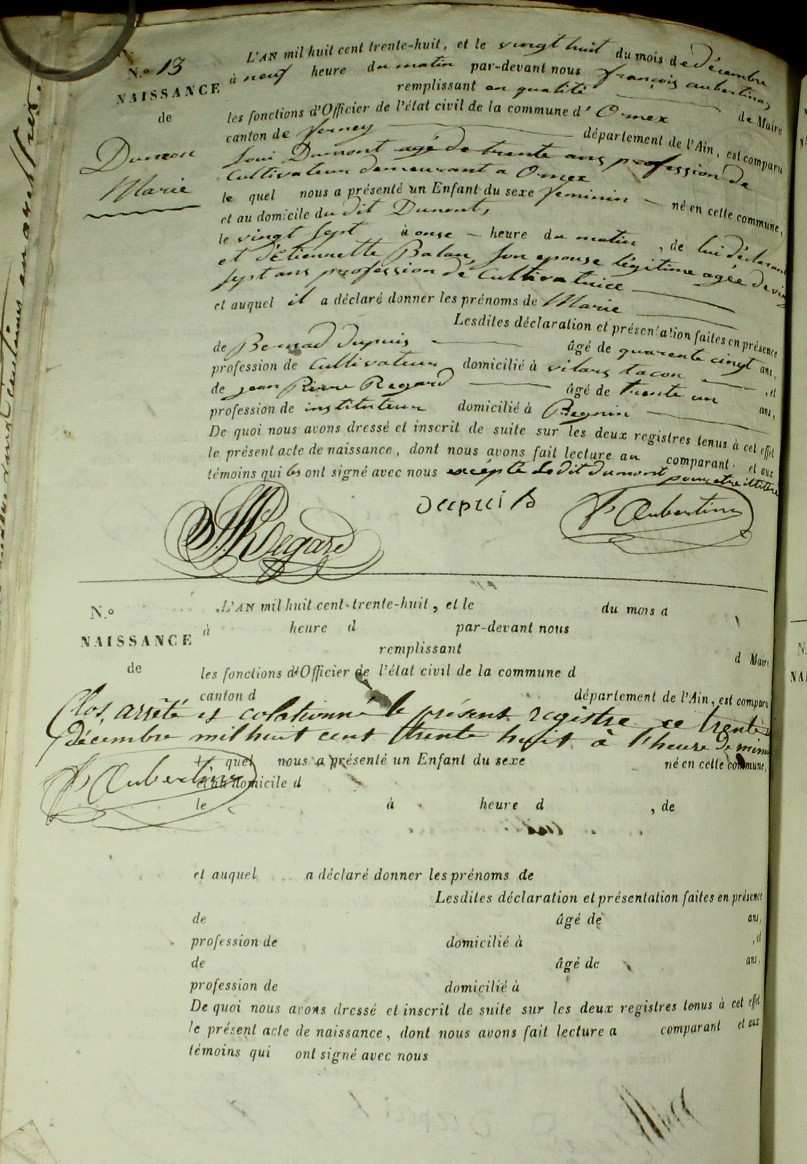 N.o 13
NAISSANCE
de
Dumon
Marie
L'AN mil huit cent trente-huit, et le vingt huit du mois de décembre
à neuf heure du matin par-devant nous françois aubertin
remplissant en qualité de Maire
les fonctions d'Officier de l'état civil de la commune d'Ornex
canton de ferney département de l'Ain, est comparu
Loui Dumont agé de trente ans profession de
Cultivateur demeurant a Ornex
le quel nous a présenté un Enfant du sexe feminin né en cette commune,
et au domicile du dit Dumont,
le vingt sept à onse heure du matin, de lui déclarant
et d'Etiennette Balan, son epouse légitime agée de vingt
sept ans profession de Cultivatrice
et auquel il a déclaré donner les prénoms de Marie
Lesdites déclaration et présentation faites en présence
de Bernad Dupuis âgé de quarente cingt ans,
profession de Cultivateur domicilié à vilars tacon, et
de jean Pierre Regard âgé de trente un ans,
profession de instituteur domicilié à Pregnin
De quoi nous avons dressé et inscrit de suite sur les deux registres tenus à cet effet
le présent acte de naissance, dont nous avons fait lecture au comparant et aux
témoins qui les ont signé avec nous excepté le dit dumont pour etre illitére
Regard
Dupuis B
f Aubertin
N.o
NAISSANCE
de
L'AN mil huit cent-trente-huit, et le du mois d
à heure d par-devant nous
remplissant d Maire
les fonctions d'Officier de l'état civil de la commune d
canton d département de l'Ain, est comparu
Clos, arrêté et colationné le présent registre ce trente
décembre mil huit cent trente huit à l'heure de minuit
quel nous a présenté un Enfant du sexe né en cette commune,
et au domicile d
f Aubertin
le à heure d , de
et auquel a déclaré donner les prénoms de
Lesdites déclaration et présentation faites en présence
de âgé de ans,
profession de domicilié à , et
de âgé de ans,
profession de domicilié à
De quoi nous avons dressé et inscrit de suite sur les deux registres tenus à cet effet
le présent acte de naissance, dont nous avons fait lecture a comparant et aux
témoins qui ont signé avec nous